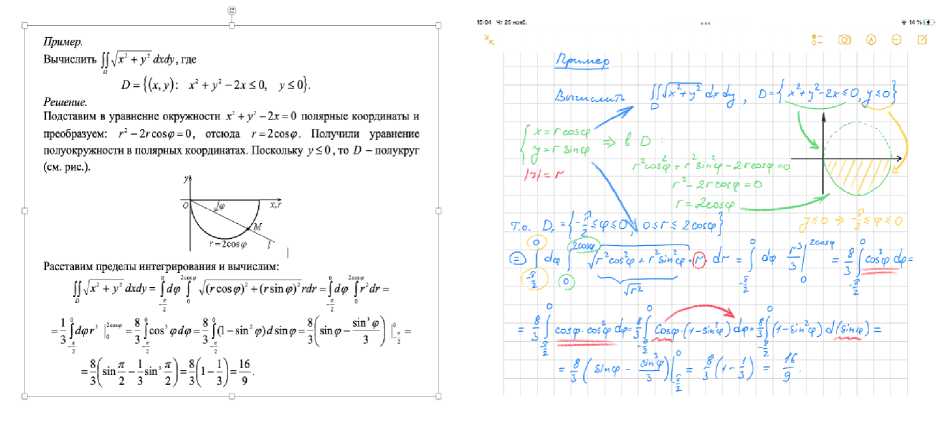 Пример.
Вычислить ∬_D √(x² + y²) dxdy, где
D = {(x, y): x² + y² − 2x ≤ 0, y ≤ 0}.
Решение.
Подставим в уравнение окружности x² + y² − 2x = 0 полярные координаты и
преобразуем: r² − 2r cosφ = 0, отсюда r = 2cosφ. Получили уравнение
полуокружности в полярных координатах. Поскольку y ≤ 0, то D – полукруг
(см. рис.).
y
O φ x, r
M
r = 2cosφ
Расставим пределы интегрирования и вычислим:
∬_D √(x² + y²) dxdy = ∫_{-π/2}^{0} dφ ∫_0^{2cosφ} √((r cosφ)² + (r sinφ)²) rdr = ∫_{-π/2}^{0} dφ ∫_0^{2cosφ} r²dr =
= 1/3 ∫_{-π/2}^{0} dφ r³ |_0^{2cosφ} = 8/3 ∫_{-π/2}^{0} cos³φ dφ = 8/3 ∫_{-π/2}^{0} (1 − sin²φ) d sinφ = 8/3 (sinφ − sin³φ/3) |_{-π/2}^{0} =
= 8/3 (sin π/2 − 1/3 sin³ π/2) = 8/3 (1 − 1/3) = 16/9.
15:04 Чт 25 нояб.
14 %
Пример
Вычислить ∬_D √(x² + y²) dxdy, D = { x² + y² − 2x ≤ 0, y ≤ 0 }
{ x = r cosφ
y = r sinφ ⇒ в D
|J| = r
r²cos²φ + r²sin²φ − 2r cosφ = 0
r² − 2r cosφ = 0
r = 2cosφ
y ≤ 0 ⇒ −π/2 ≤ φ ≤ 0
т.о. D_r = { −π/2 ≤ φ ≤ 0, 0 ≤ r ≤ 2cosφ }
= ∫_{-π/2}^{0} dφ ∫_0^{2cosφ} √(r²cos²φ + r²sin²φ) · r dr = ∫_{-π/2}^{0} dφ r³/3 |_0^{2cosφ} = 8/3 ∫_{-π/2}^{0} cos³φ dφ =
√r²
= 8/3 ∫_{-π/2}^{0} cosφ · cos²φ dφ = 8/3 ∫_{-π/2}^{0} cosφ (1 − sin²φ) dφ = 8/3 ∫_{-π/2}^{0} (1 − sin²φ) d(sinφ) =
= 8/3 (sinφ − sin³φ/3) |_{-π/2}^{0} = 8/3 (1 − 1/3) = 16/9.